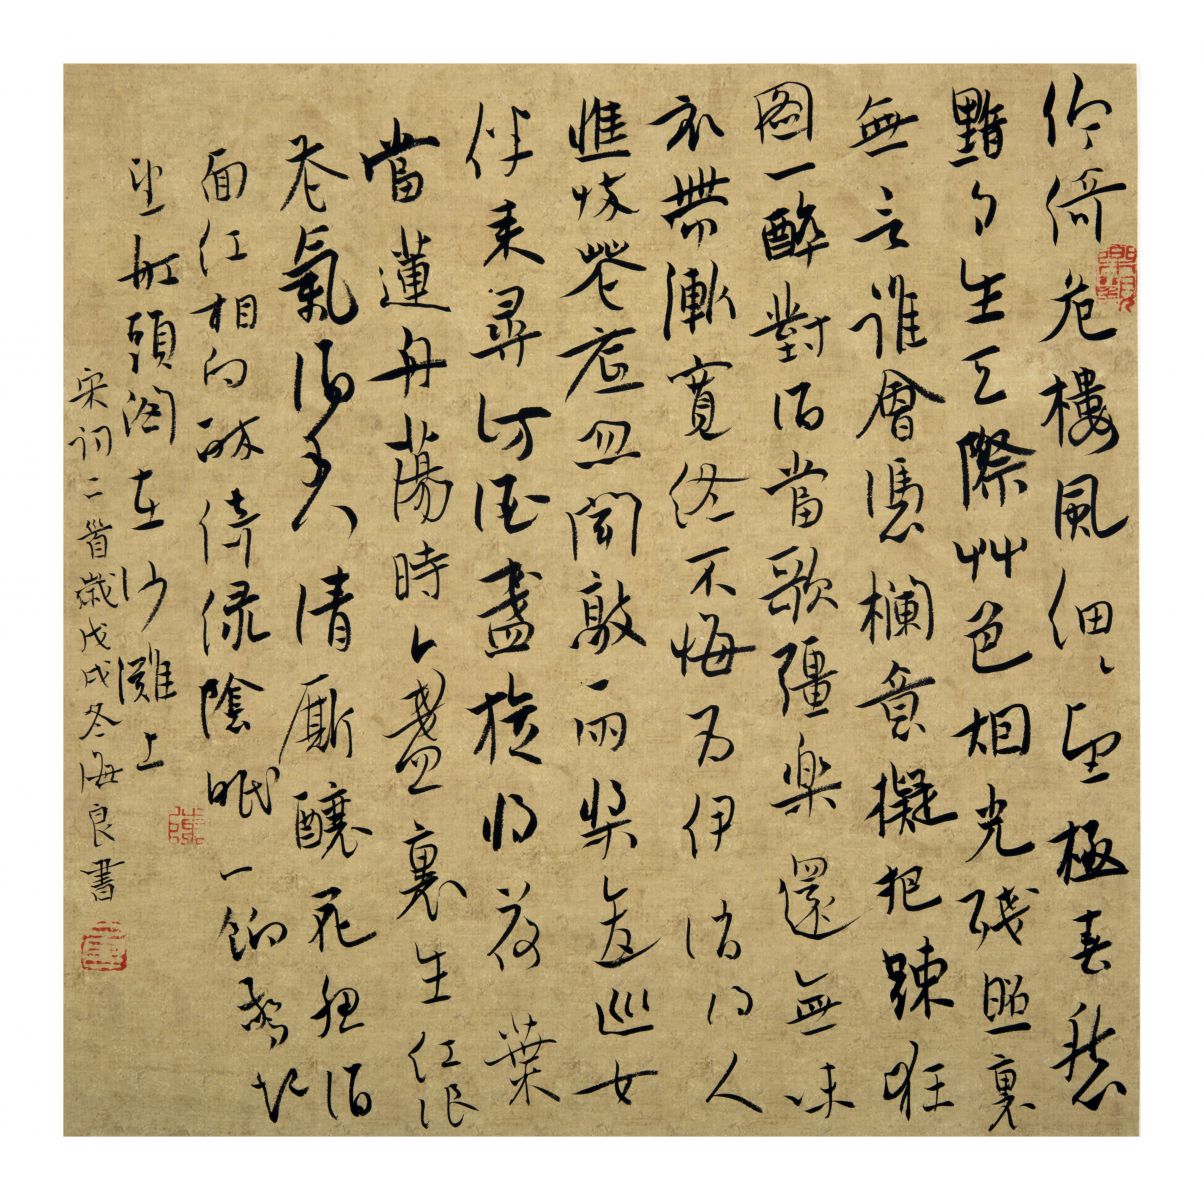 佇倚危樓風細細望極春愁
黯黯生天際艸色烟光殘照裏
無言誰會憑欄意擬把踈狂
圖一醉對酒當歌彊樂還無味
衣帶漸寬終不悔為伊消得人
憔悴花底忽聞敲兩槳逡巡女
伴來尋訪酒盞旋將荷葉
當蓮舟蕩時時盞裏生紅浪
花氣酒香清厮釀花腮酒
面紅相向醉倚緑陰眠一餉驚起
望船頭閣在沙灘上
宋詞二首歲戊戌冬海良書